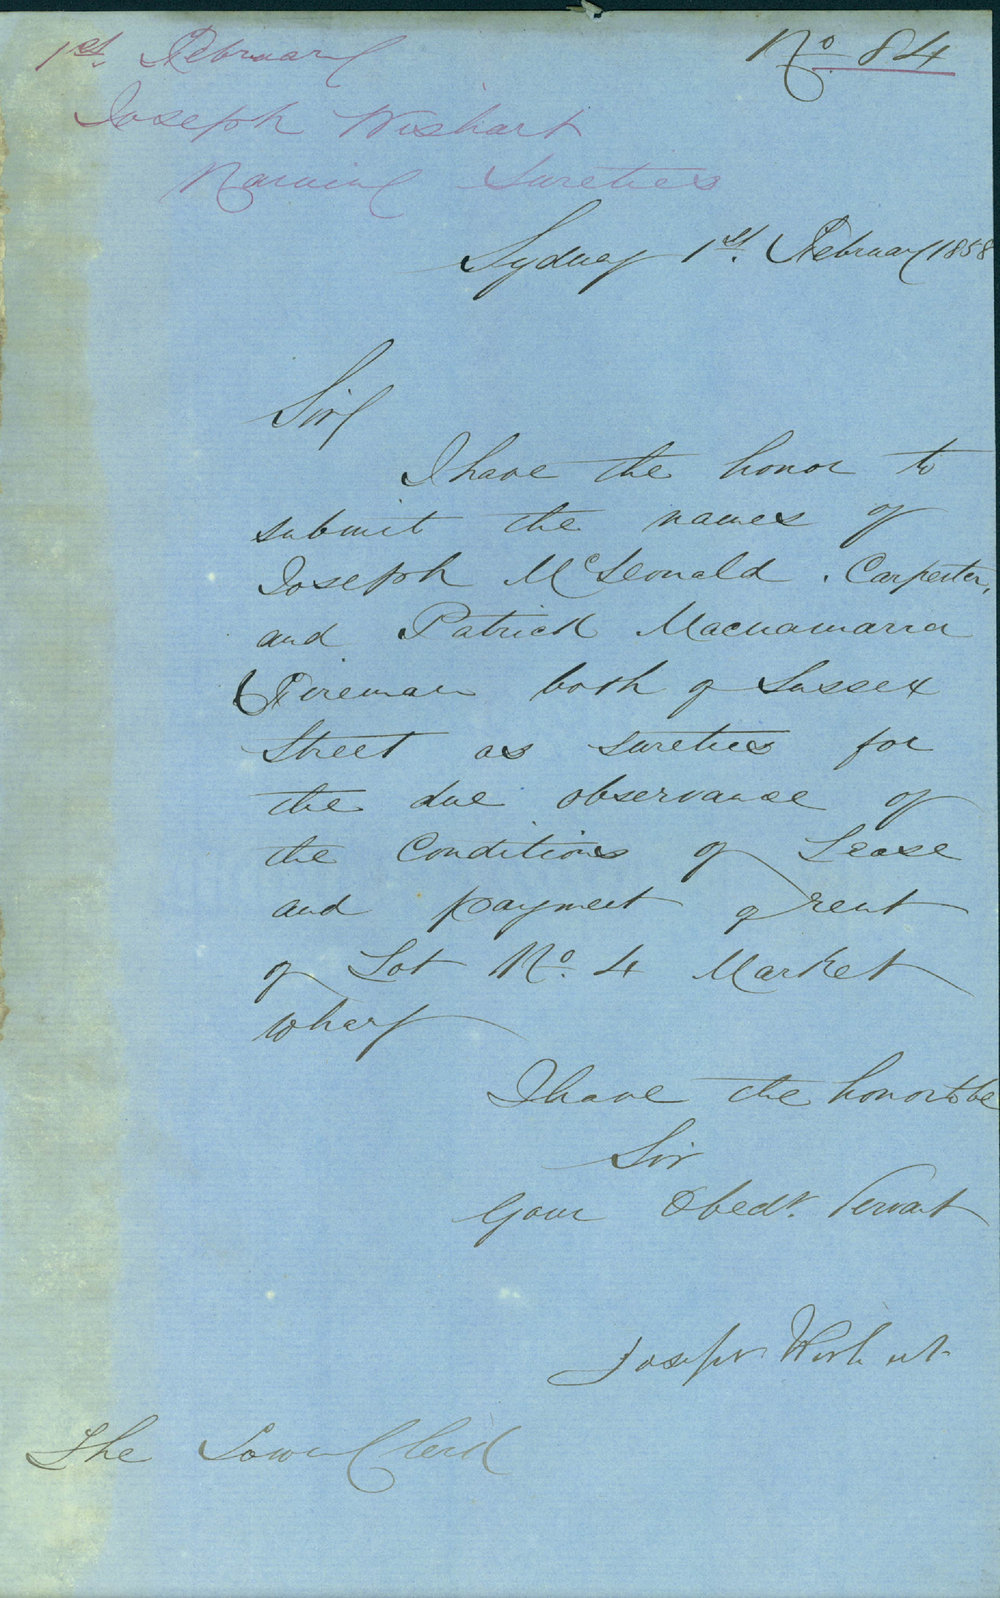 1st. February
No. 84
Joseph Wishart
Naming Sureties
Sydney 1st. February 1858
Sir
I have the honor to
submit the names of
Joseph McDonald. Carpenter,
and Patrick Macnamarra
Fireman both of Sussex
Street as sureties for
the due observance of
the Conditions of Lease
and payment of rent
of Lot No. 4 Market
Wharf
I have the honor to be
Sir
Your Obedt. Servant
Joseph Wishart
The Town Clerk